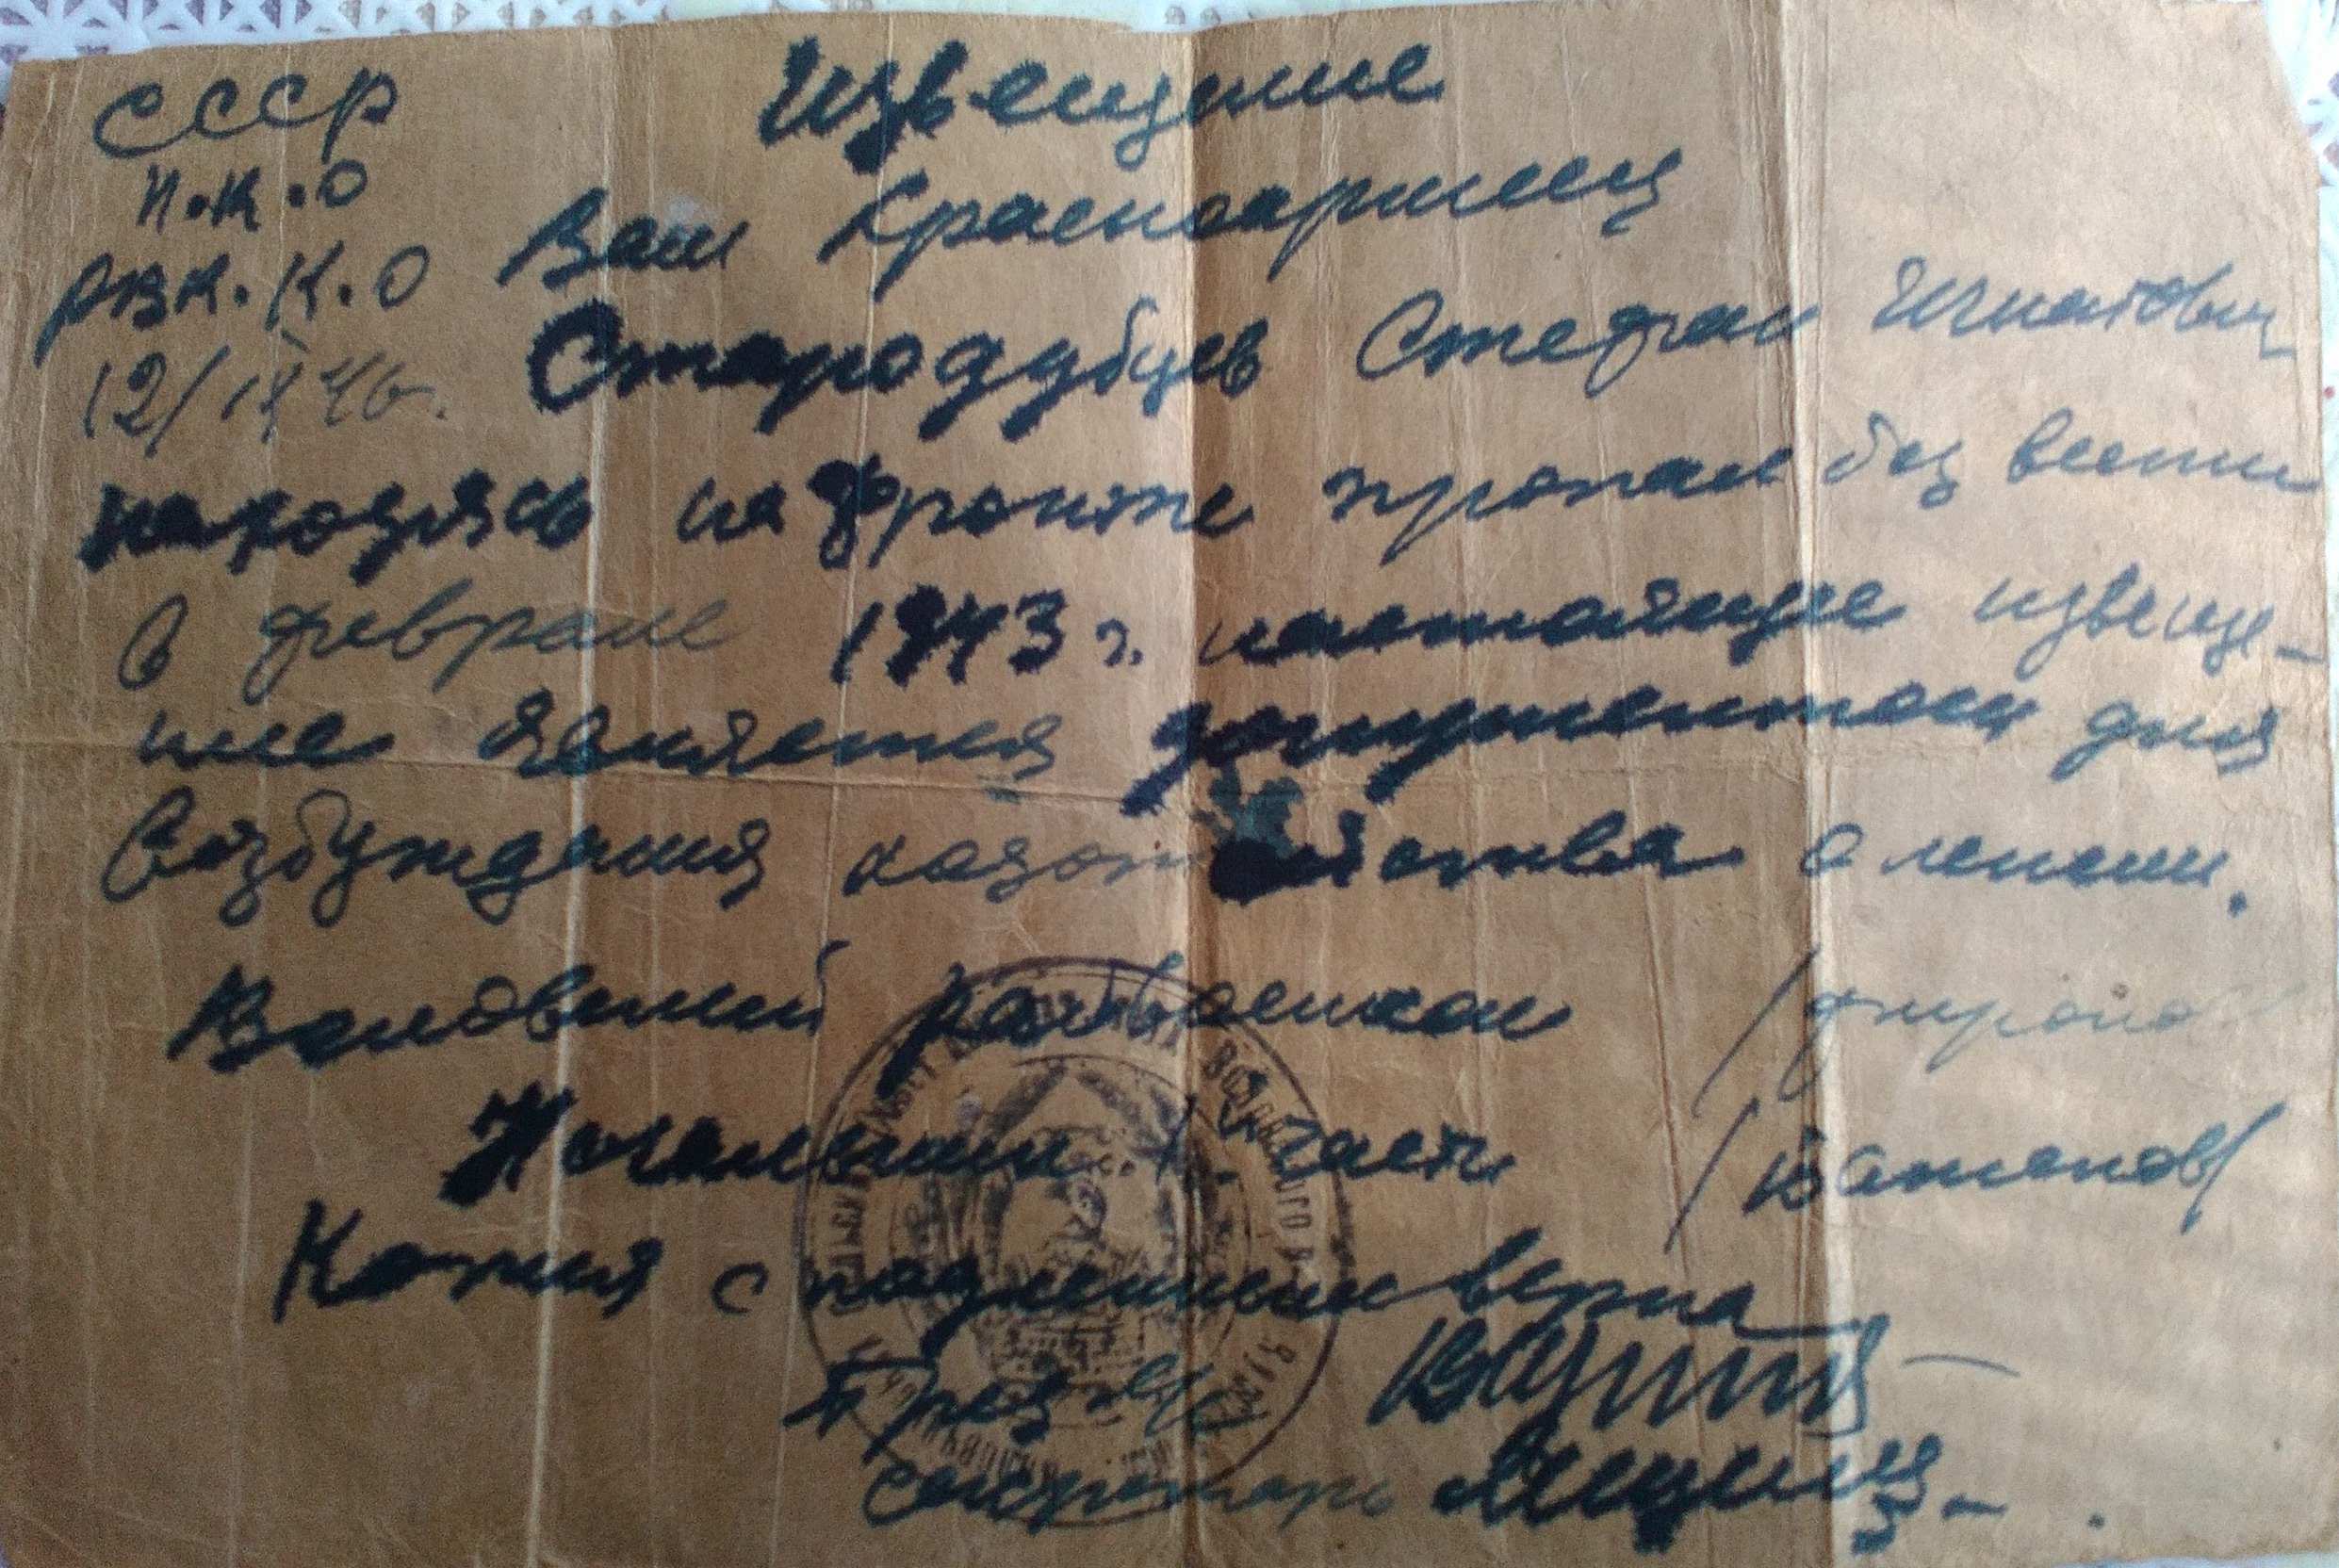 СССР Извещение
Н.К.О
РВК. К.О Ваш Красноармеец
12/IX 46г. Стародубцев Стефан Игнатович
находясь на фронте пропал без вести
в феврале 1943 г. настоящее извеще-
ние является документом для
возбуждения ходотайства о пенсии.
Воловский райвоенком
Начальник части
Копия с подлинным верна
Пред с/с
секретарь